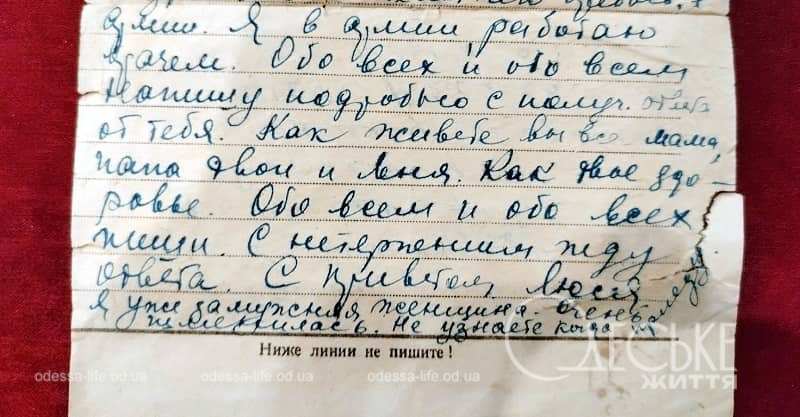 армии. Я в армии работаю
врачем. Обо всех и обо всем
напишу подробно с получ. ответа
от тебя. Как живете вы все мама,
папа твои и Леня. Как твое здо-
ровье. Обо всем и обо всех
пиши. С нетерпением жду
ответа. С приветом Люся
Я уже замужняя женщина. Очень
изменилась. Не узнаете когда
Ниже линии не пишите!
odessa-life.od.ua odessa-life.od.ua
ОДЕСЬКЕ
ЖИТТЯ